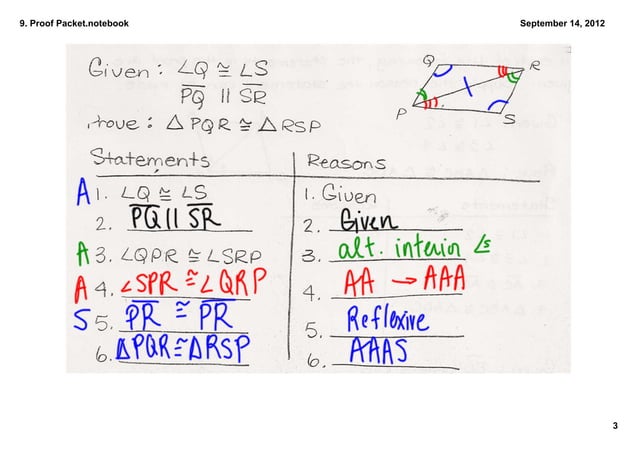 9. Proof Packet.notebook
September 14, 2012
Given : ∠Q ≅ ∠S
PQ || SR
Prove : △PQR ≅ △RSP
Q
R
P
S
Statements
Reasons
A 1. ∠Q ≅ ∠S
1. Given
2. PQ || SR
2. Given
A 3. ∠QPR ≅ ∠SRP
3. alt. interior ∠s
A 4. ∠SPR ≅ ∠QRP
4. AA → AAA
S 5. PR ≅ PR
5. Reflexive
6. △PQR ≅ △RSP
6. AAAS
3